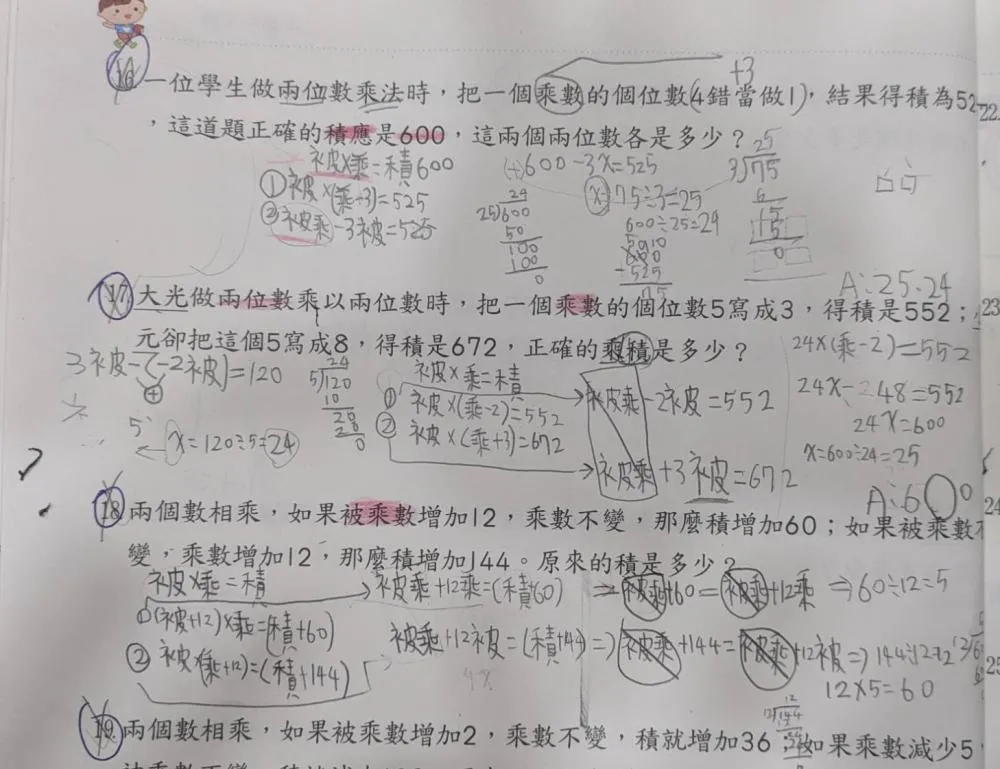 16 一位學生做兩位數乘法時，把一個乘數的個位數(4錯當做1)，結果得積為52
+3
，這道題正確的積應是600，這兩個兩位數各是多少？
被×乘=積600
①被×(乘-3)=525
②被乘-3被=525
600-3X=525
X=75÷3=25
600÷25=24
24
25)600
50
100
100
0
600
-525
75
25
3)75
6
15
15
0
A:25.24
22.
17 大光做兩位數乘以兩位數時，把一個乘數的個位數5寫成3，得積是552；
23
元卻把這個5寫成8，得積是672，正確的乘積是多少？
3被-(-2被)=120
24
5)120
10
20
20
0
X=120÷5=24
被×乘=積
①被×(乘-2)=552
②被×(乘+3)=672
被乘-2被=552
被乘+3被=672
24×(乘-2)=552
24X-48=552
24X=600
X=600÷24=25
A:600
24
18 兩個數相乘，如果被乘數增加12，乘數不變，那麼積增加60；如果被乘數不
變，乘數增加12，那麼積增加144。原來的積是多少？
被×乘=積
①(被+12)×乘=(積+60)
②被×(乘+12)=(積+144)
被乘+12乘=(積+60) ⇒被乘+60=被乘+12乘 ⇒60÷12=5
被乘+12被=(積+144)⇒被乘+144=被乘+12被⇒144÷12=12
12×5=60
25
12
12)144
19 兩個數相乘，如果被乘數增加2，乘數不變，積就增加36；如果乘數減少5